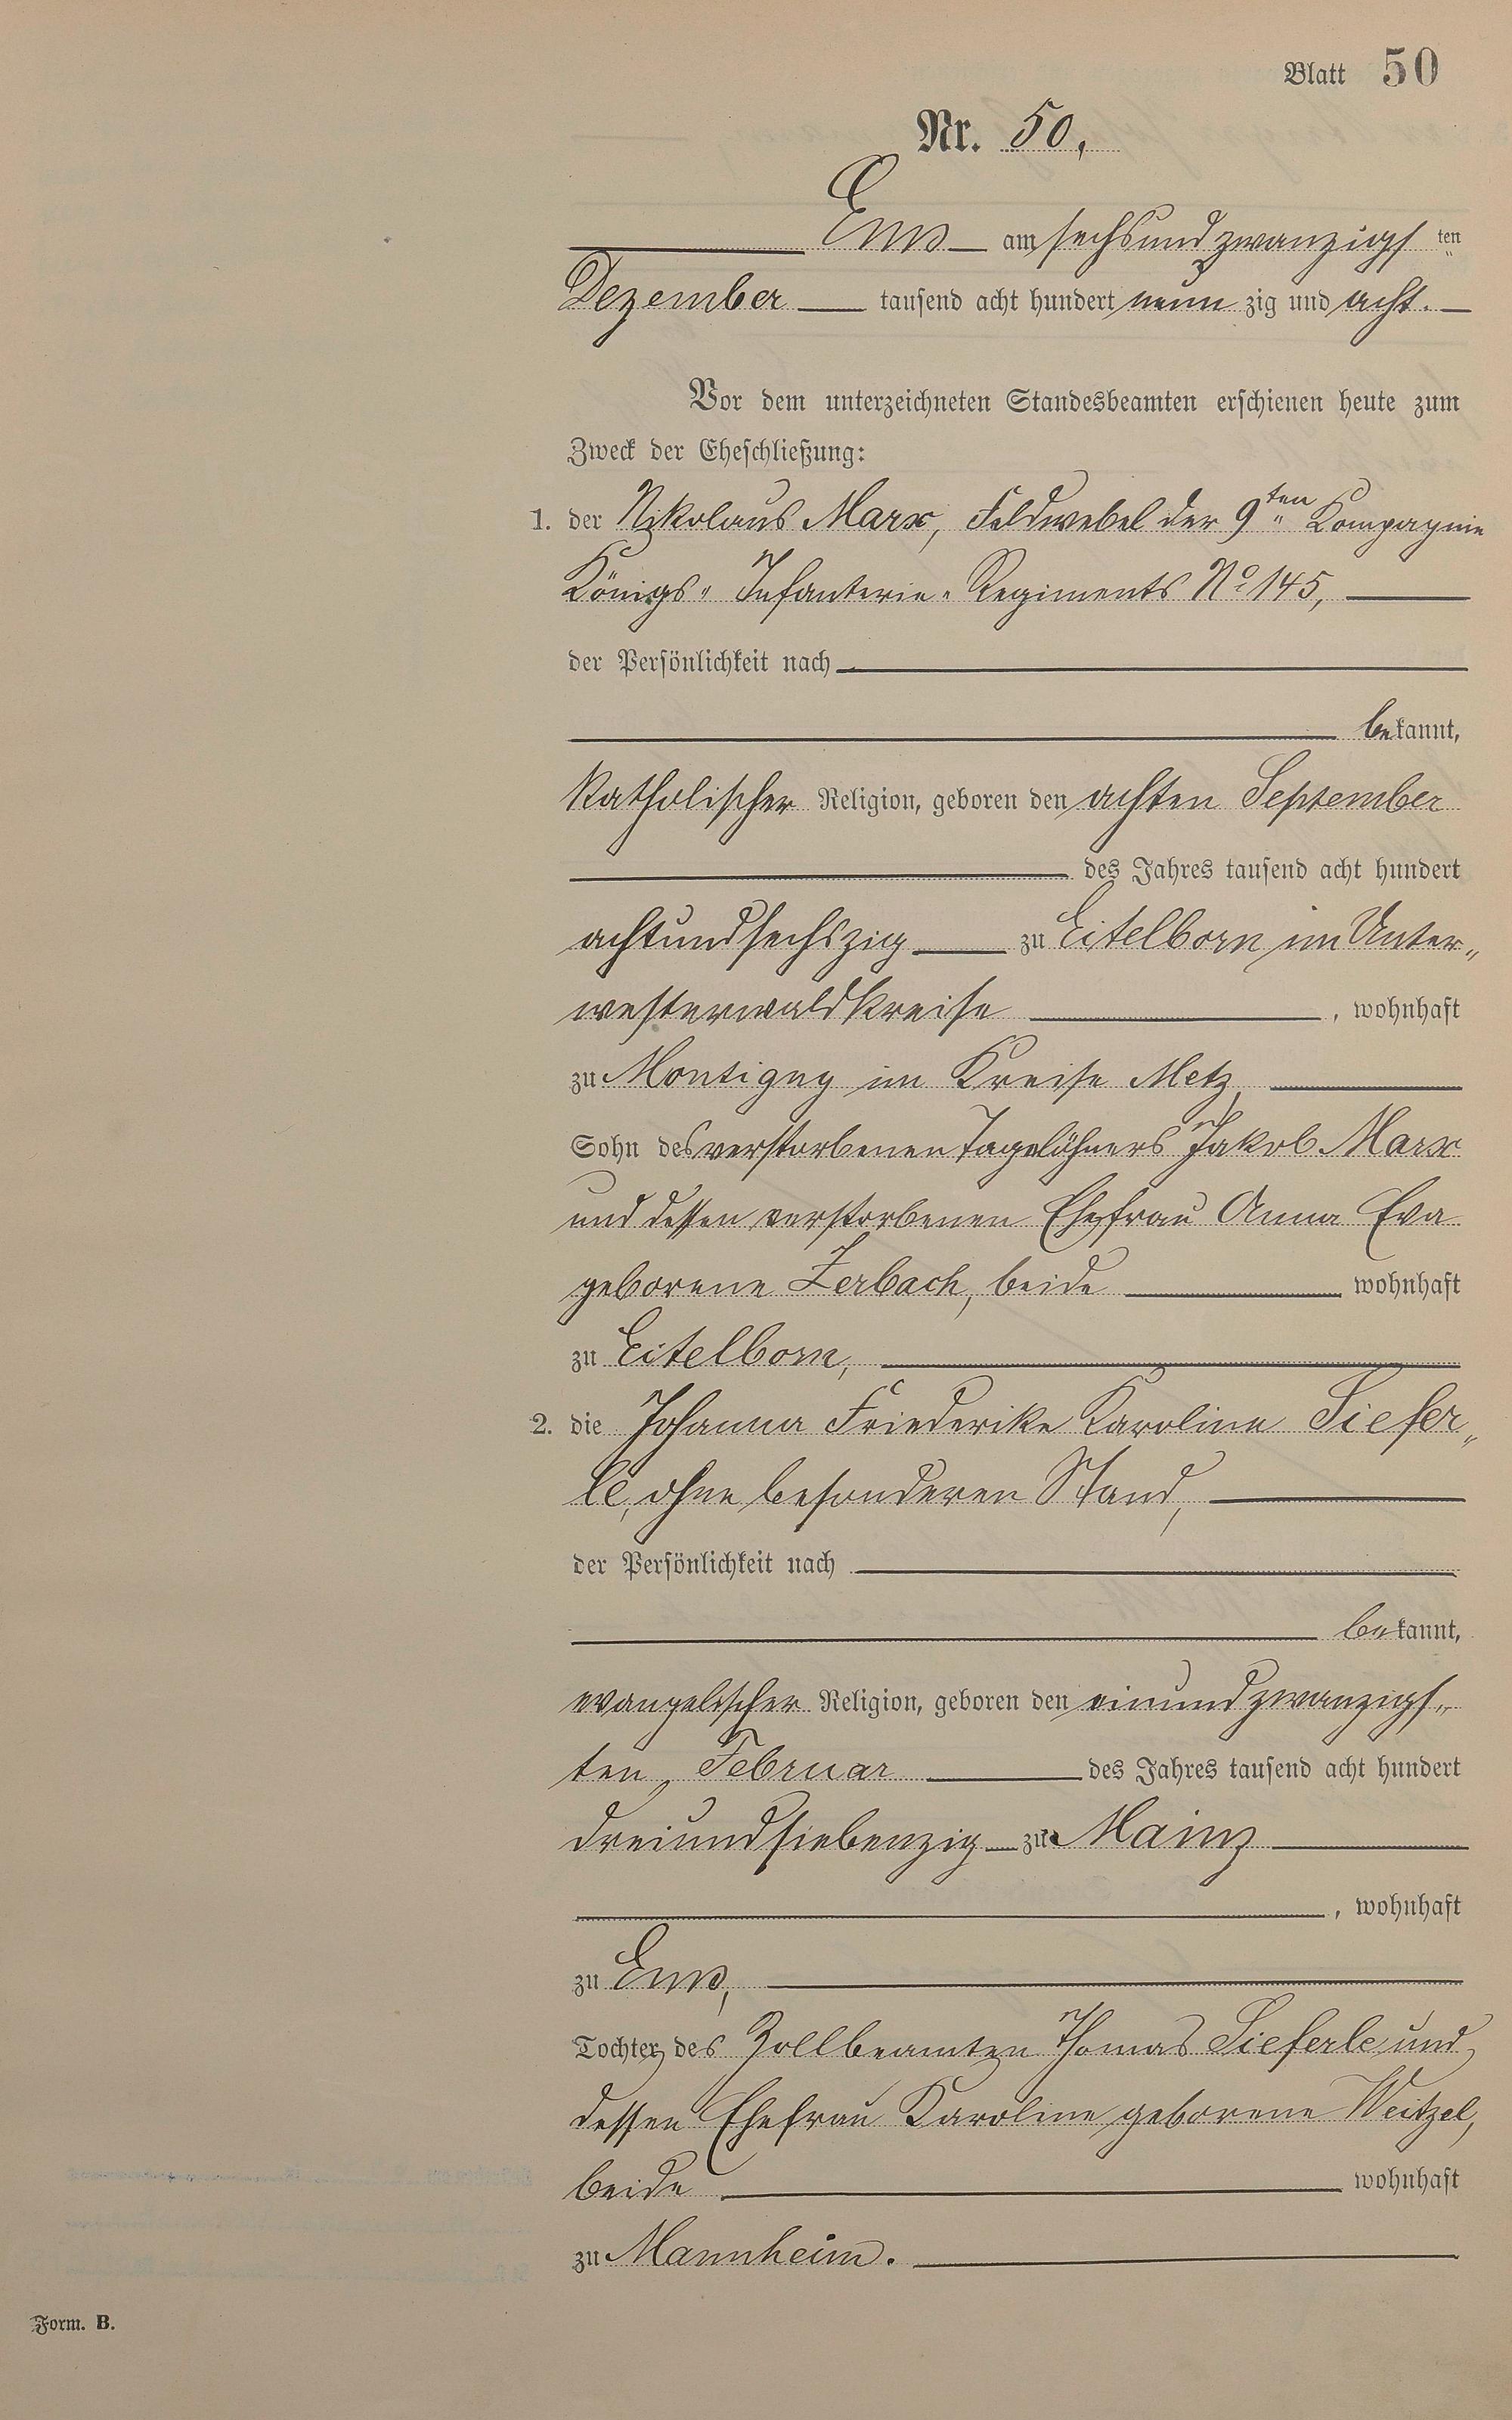 Blatt 50
Nr. 50.
Ems am sechsundzwanzigsten
Dezember tausend acht hundert neunzig und acht.
Vor dem unterzeichneten Standesbeamten erschienen heute zum
Zweck der Eheschließung:
1. der Nikolaus Marx, Feldwebel der 9ten Kompagnie
Königs-Infanterie-Regiments No 145,
der Persönlichkeit nach
bekannt,
katholischer Religion, geboren den achten September
des Jahres tausend acht hundert
achtundsechszig zu Eitelborn im Unter-
westerwaldkreise, wohnhaft
zu Montigny im Kreise Metz,
Sohn des verstorbenen Tagelöhners Jakob Marx
und dessen verstorbenen Ehefrau Anna Eva
geborene Zerbach, beide wohnhaft
zu Eitelborn,
2. die Johanna Friederike Karoline Siefer-
le, ohne besonderen Stand,
der Persönlichkeit nach
bekannt,
evangelischer Religion, geboren den einundzwanzigs-
ten Februar des Jahres tausend acht hundert
dreiundsiebenzig zu Mainz
, wohnhaft
zu Ems,
Tochter des Zollbeamten Thomas Sieferle und
dessen Ehefrau Karoline geborene Weitzel,
beide wohnhaft
zu Mannheim.
Form. B.